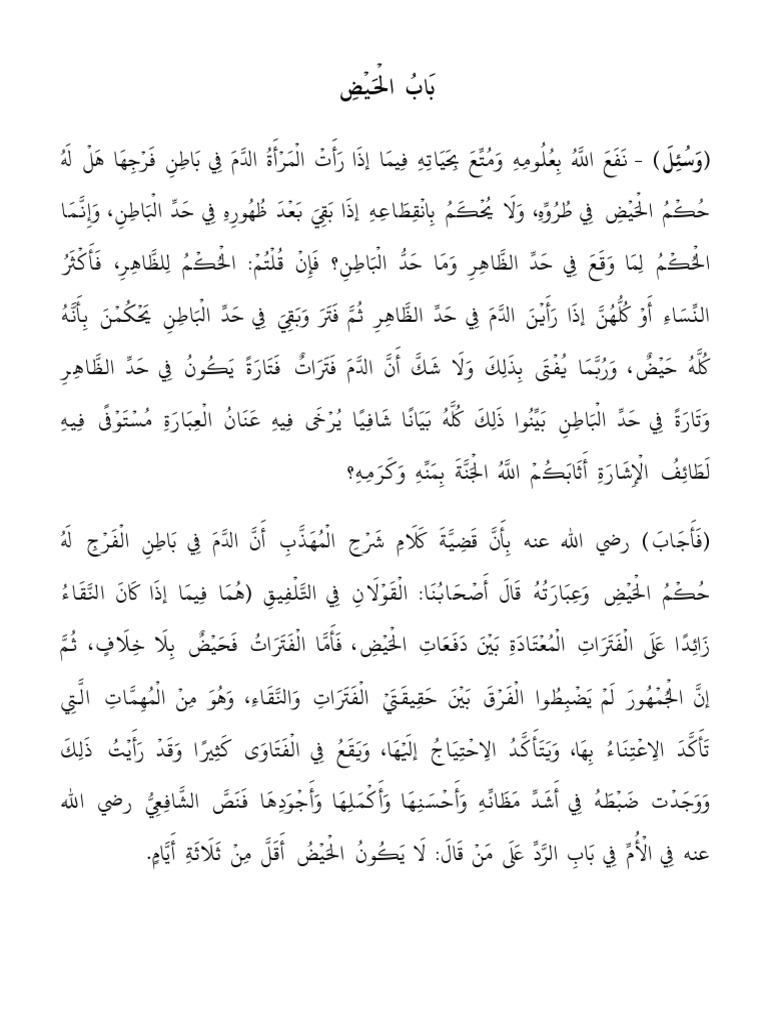 بَابُ الْحَيْضِ
(وَسُئِلَ) - نَفَعَ اللَّهُ بِعُلُومِهِ وَمُتِّعَ بِحَيَاتِهِ فِيمَا إذَا رَأَتْ الْمَرْأَةُ الدَّمَ فِي بَاطِنِ فَرْجِهَا هَلْ لَهُ
حُكْمُ الْحَيْضِ فِي طُرُوِّهِ، وَلَا يُحْكَمُ بِانْقِطَاعِهِ إذَا بَقِيَ بَعْدَ ظُهُورِهِ فِي حَدِّ الْبَاطِنِ، وَإِنَّمَا
الْحُكْمُ لِمَا وَقَعَ فِي حَدِّ الظَّاهِرِ وَمَا حَدُّ الْبَاطِنِ؟ فَإِنْ قُلْتُمْ: الْحُكْمُ لِلظَّاهِرِ، فَأَكْثَرُ
النِّسَاءِ أَوْ كُلُّهُنَّ إذَا رَأَيْنَ الدَّمَ فِي حَدِّ الظَّاهِرِ ثُمَّ فَتَرَ وَبَقِيَ فِي حَدِّ الْبَاطِنِ يَحْكُمْنَ بِأَنَّهُ
كُلَّهُ حَيْضٌ، وَرُبَّمَا يُفْتَى بِذَلِكَ وَلَا شَكَّ أَنَّ الدَّمَ فَتَرَاتٌ فَتَارَةً يَكُونُ فِي حَدِّ الظَّاهِرِ
وَتَارَةً فِي حَدِّ الْبَاطِنِ بَيِّنُوا ذَلِكَ كُلَّهُ بَيَانًا شَافِيًا يُرْخَى فِيهِ عَنَانُ الْعِبَارَةِ مُسْتَوْفًى فِيهِ
لَطَائِفُ الْإِشَارَةِ أَثَابَكُمْ اللَّهُ الْجَنَّةَ بِمَنِّهِ وَكَرَمِهِ؟
(فَأَجَابَ) رضي الله عنه بِأَنَّ قَضِيَّةَ كَلَامِ شَرْحِ الْمُهَذَّبِ أَنَّ الدَّمَ فِي بَاطِنِ الْفَرْجِ لَهُ
حُكْمُ الْحَيْضِ وَعِبَارَتُهُ قَالَ أَصْحَابُنَا: الْقَوْلَانِ فِي التَّلْفِيقِ (هُمَا فِيمَا إذَا كَانَ النَّقَاءُ
زَائِدًا عَلَى الْفَتَرَاتِ الْمُعْتَادَةِ بَيْنَ دَفَعَاتِ الْحَيْضِ، فَأَمَّا الْفَتَرَاتُ فَحَيْضٌ بِلَا خِلَافٍ، ثُمَّ
إنَّ الْجُمْهُورَ لَمْ يَضْبِطُوا الْفَرْقَ بَيْنَ حَقِيقَتَيْ الْفَتَرَاتِ وَالنَّقَاءِ، وَهُوَ مِنْ الْمُهِمَّاتِ الَّتِي
تَأَكَّدَ الِاعْتِنَاءُ بِهَا، وَيَتَأَكَّدُ الِاحْتِيَاجُ إلَيْهَا، وَيَقَعُ فِي الْفَتَاوَى كَثِيرًا وَقَدْ رَأَيْتُ ذَلِكَ
وَوَجَدْت ضَبْطَهُ فِي أَشَدِّ مَظَانِّهِ وَأَحْسَنِهَا وَأَكْمَلِهَا وَأَجْوَدِهَا فَنَصَّ الشَّافِعِيُّ رضي الله
عنه فِي الْأُمِّ فِي بَابِ الرَّدِّ عَلَى مَنْ قَالَ: لَا يَكُونُ الْحَيْضُ أَقَلَّ مِنْ ثَلَاثَةِ أَيَّامٍ.